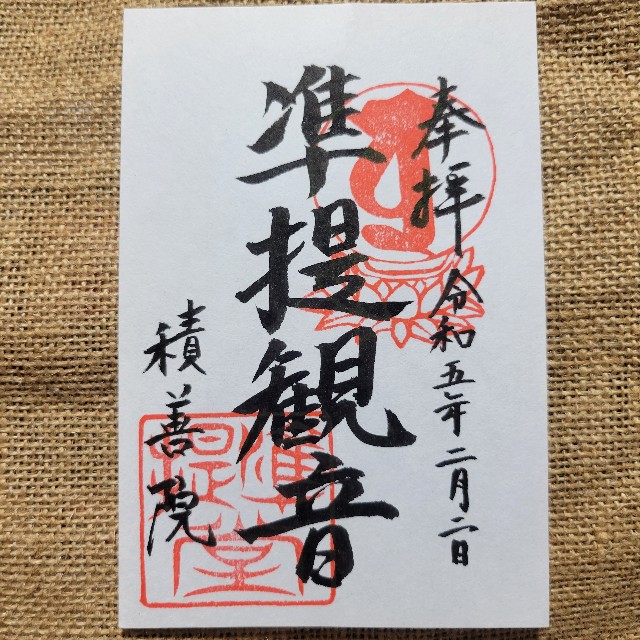 奉拝 令和五年二月二日
准提観音
積善院
准提堂